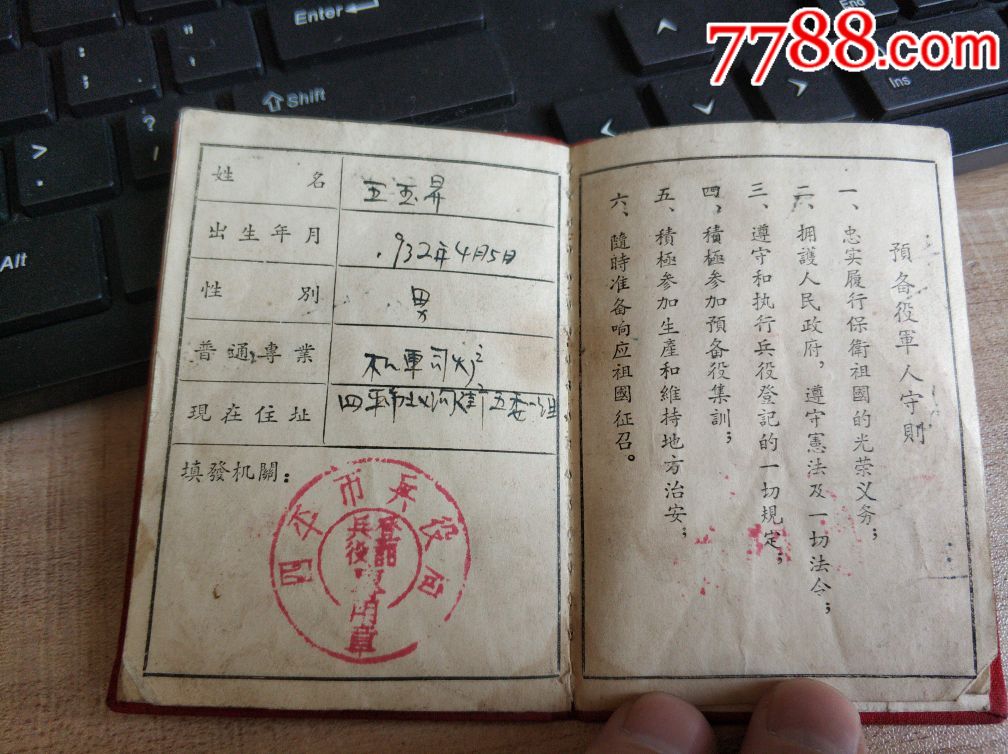 7788.com
Enter
Shift
Alt
Ins
姓名
王玉昇
出生年月
1932年4月5日
性別
男
普通專業
現在住址
填發机關：
四平市兵役局
兵役登記
專用章
預备役軍人守則
一、忠实履行保衛祖國的光荣义务；
二、拥護人民政府，遵守憲法及一切法令；
三、遵守和执行兵役登記的一切規定；
四、積極参加預备役集訓；
五、積極参加生產和維持地方治安；
六、隨時准备响应祖國征召。